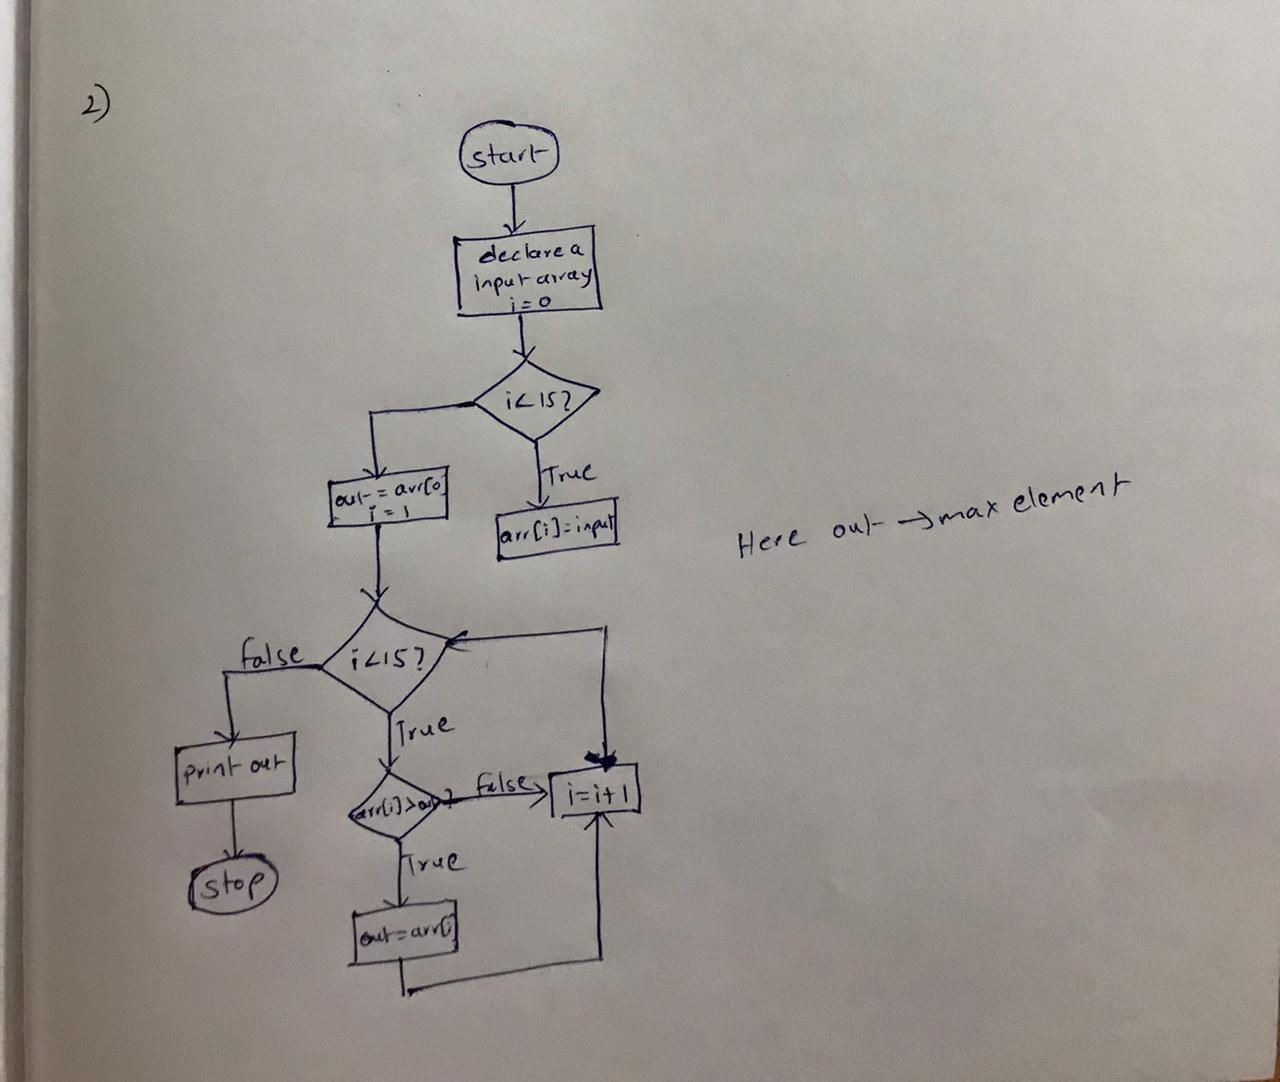 2)
start
declare a
input array
i = 0
i<15?
True
out = arr[0]
i = 1
arr[i]=input
Here out → max element
false
i<15?
True
print out
arr[i]>out?
false
i=i+1
True
stop
out=arr[i]